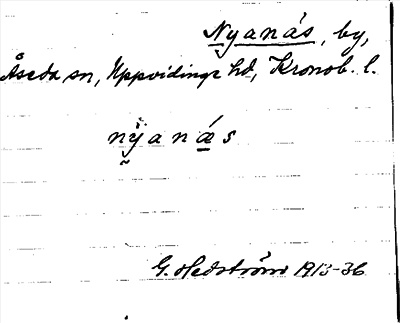 Nyanäs, by,
Åseda sn, Uppvidinge hd, Kronob. l.
nỳanǽs
G. Hedström 1913-36